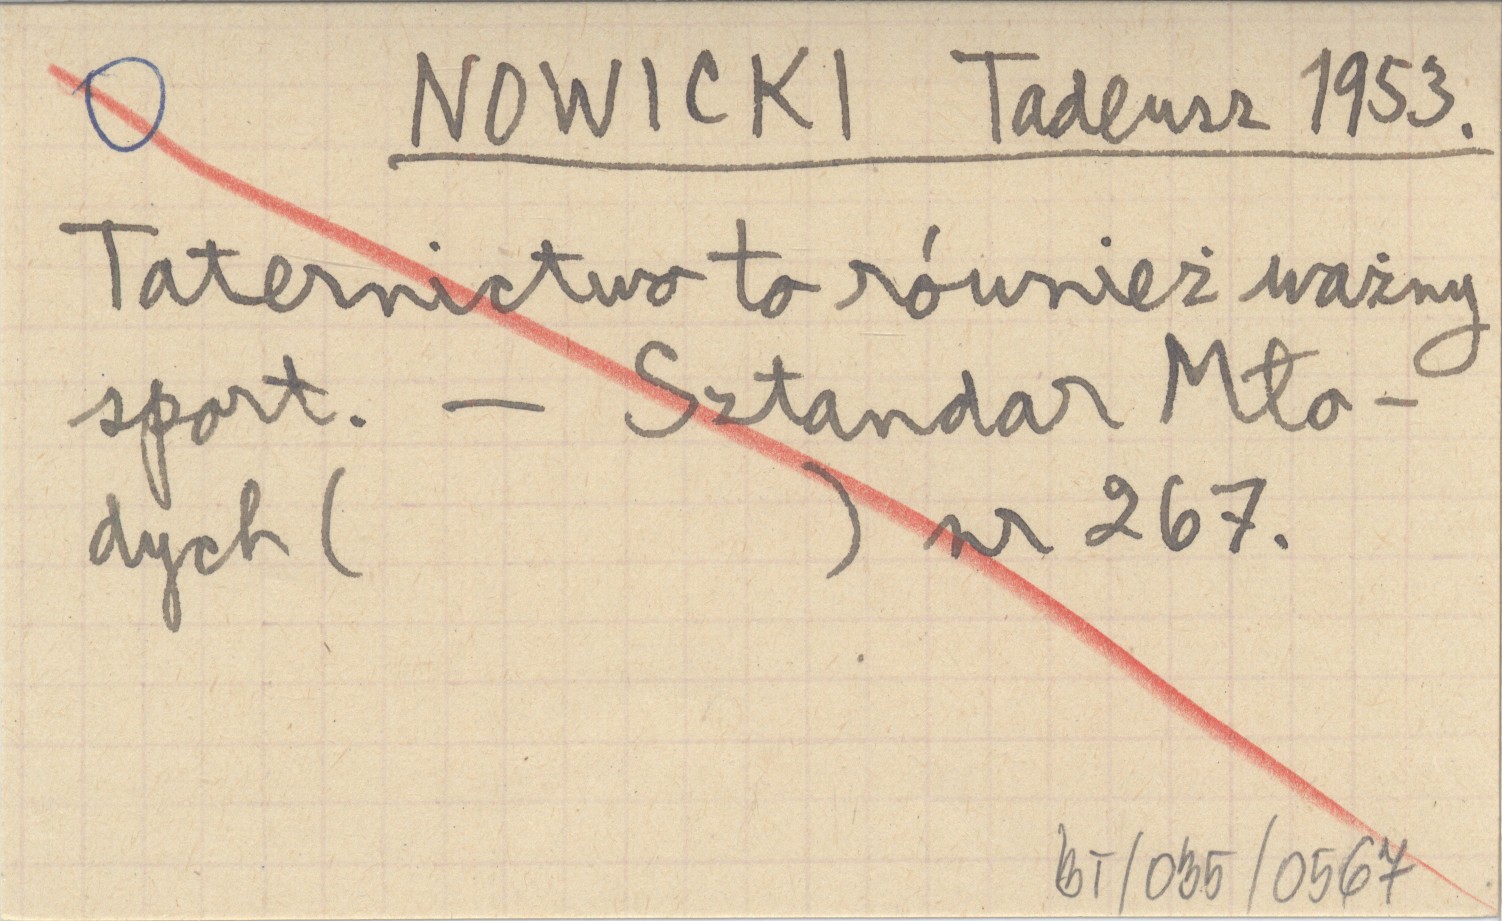 NOWICKI Tadeusz 1953.
Taternictwo to również ważny
sport. — Sztandar Mło-
dych ( ) nr 267.
BT/035/0567